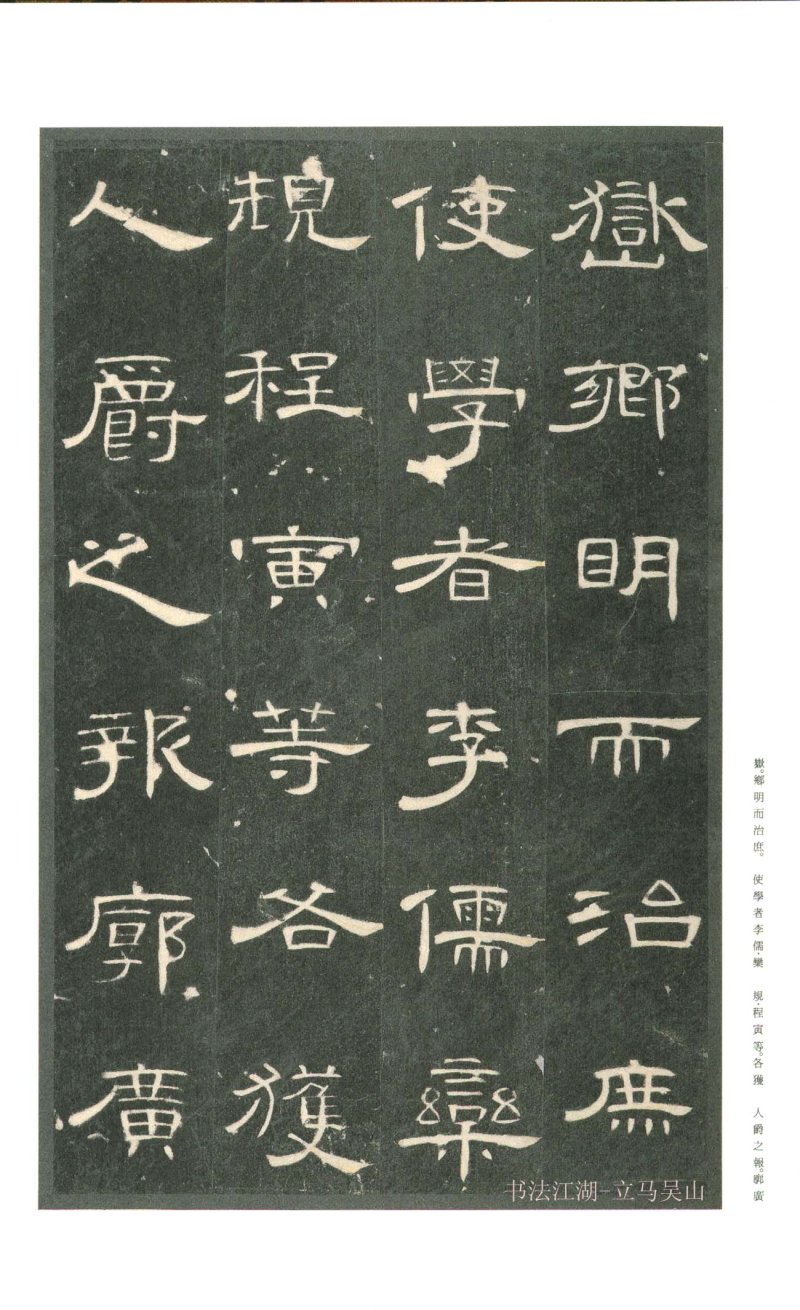 嶽鄉明而治庶
使學者李儒欒
規程寅等各獲
人爵之報廓廣
嶽。鄉明而治庶。 使學者李儒·欒 規·程寅等。各獲 人爵之報。廓廣
书法江湖-立马吴山